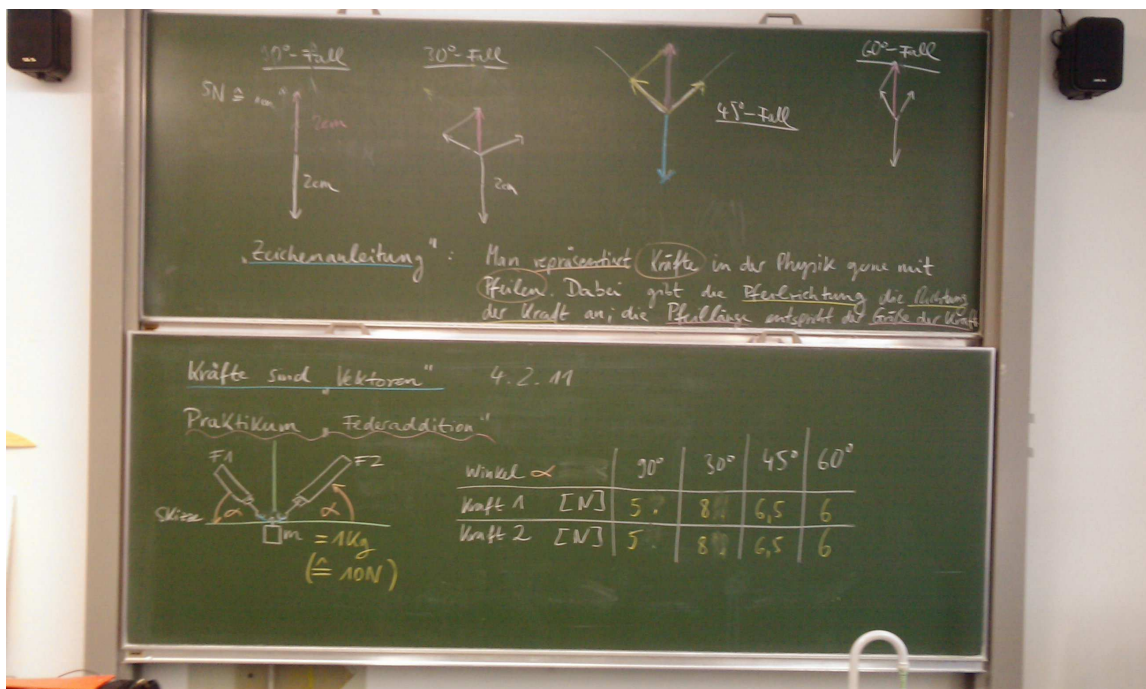 90°-Fall
30°-Fall
60°-Fall
5N ≙ 1cm
2cm
45°-Fall
2cm
2cm
"Zeichenanleitung": Man repräsentiert Kräfte in der Physik gerne mit
Pfeilen. Dabei gibt die Pfeilrichtung die Richtung
der Kraft an, die Pfeillänge entspricht der Größe der Kraft
Kräfte sind "Vektoren" 4.2.11
Praktikum "Federaddition"
F1 F2
Winkel α 90° 30° 45° 60°
Skizze α α
Kraft 1 [N] 5 8 6,5 6
m = 1Kg
Kraft 2 [N] 5 8 6,5 6
(≙ 10N)